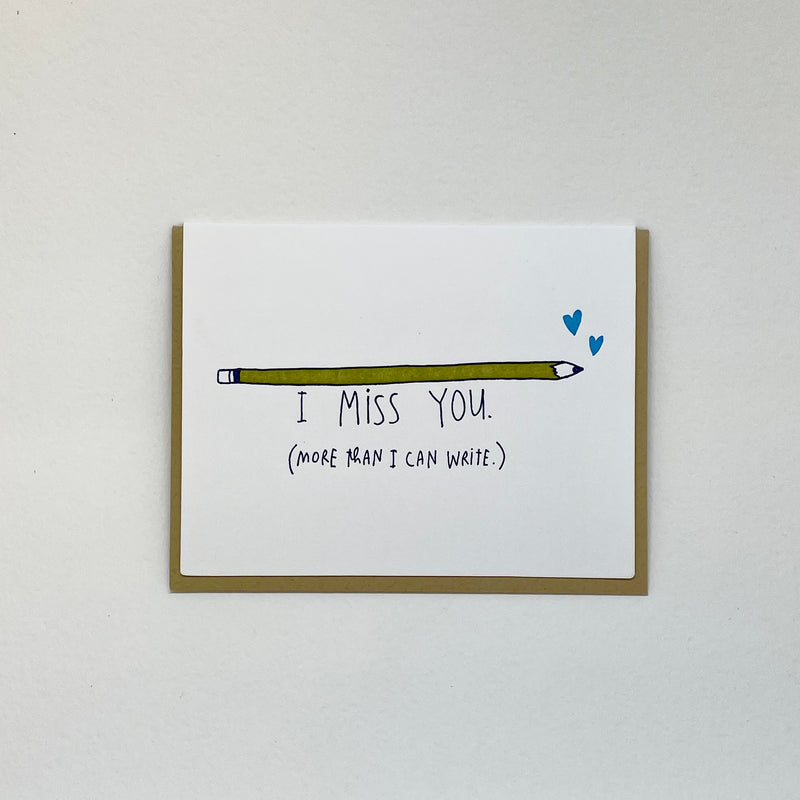 I MISS YOU.
(MORE THAN I CAN WRITE.)